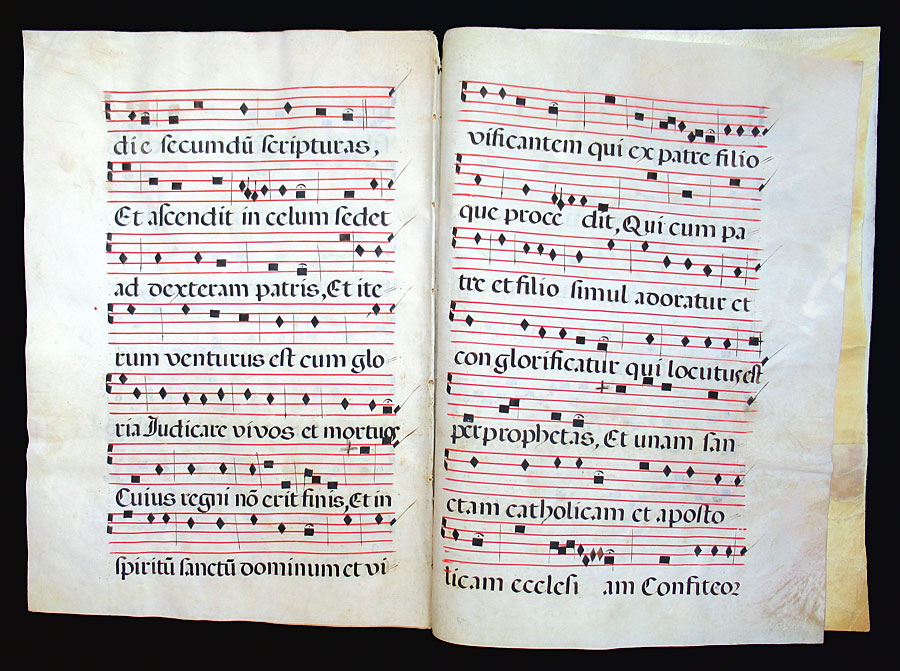 die secumdū scripturas,
Et ascendit in celum sedet
ad dexteram patris, Et ite
rum venturus est cum glo
ria Iudicare vivos et mortuos
Cuius regni nō erit finis, Et in
spiritū sanctū dominum et vi
vificantem qui ex patre filio
que proce dit, Qui cum pa
tre et filio simul adoratur et
con glorificatur qui locutus est
per prophetas, Et unam san
ctam catholicam et aposto
licam ecclesi am Confiteor